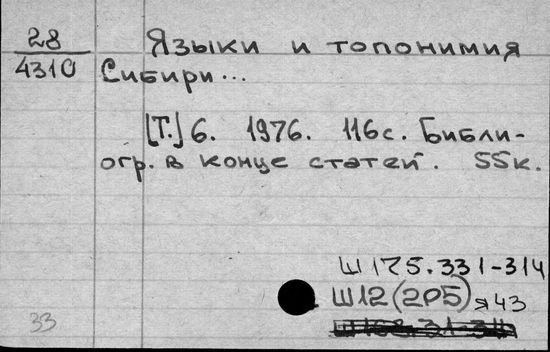 28 Языки и топонимия
4310 Сибири...
[Т.] 6. 1976. 116с. Библи-
огр. в конце статей. 55к.
Ш175.331-314
Ш12(2Р5) я43
33